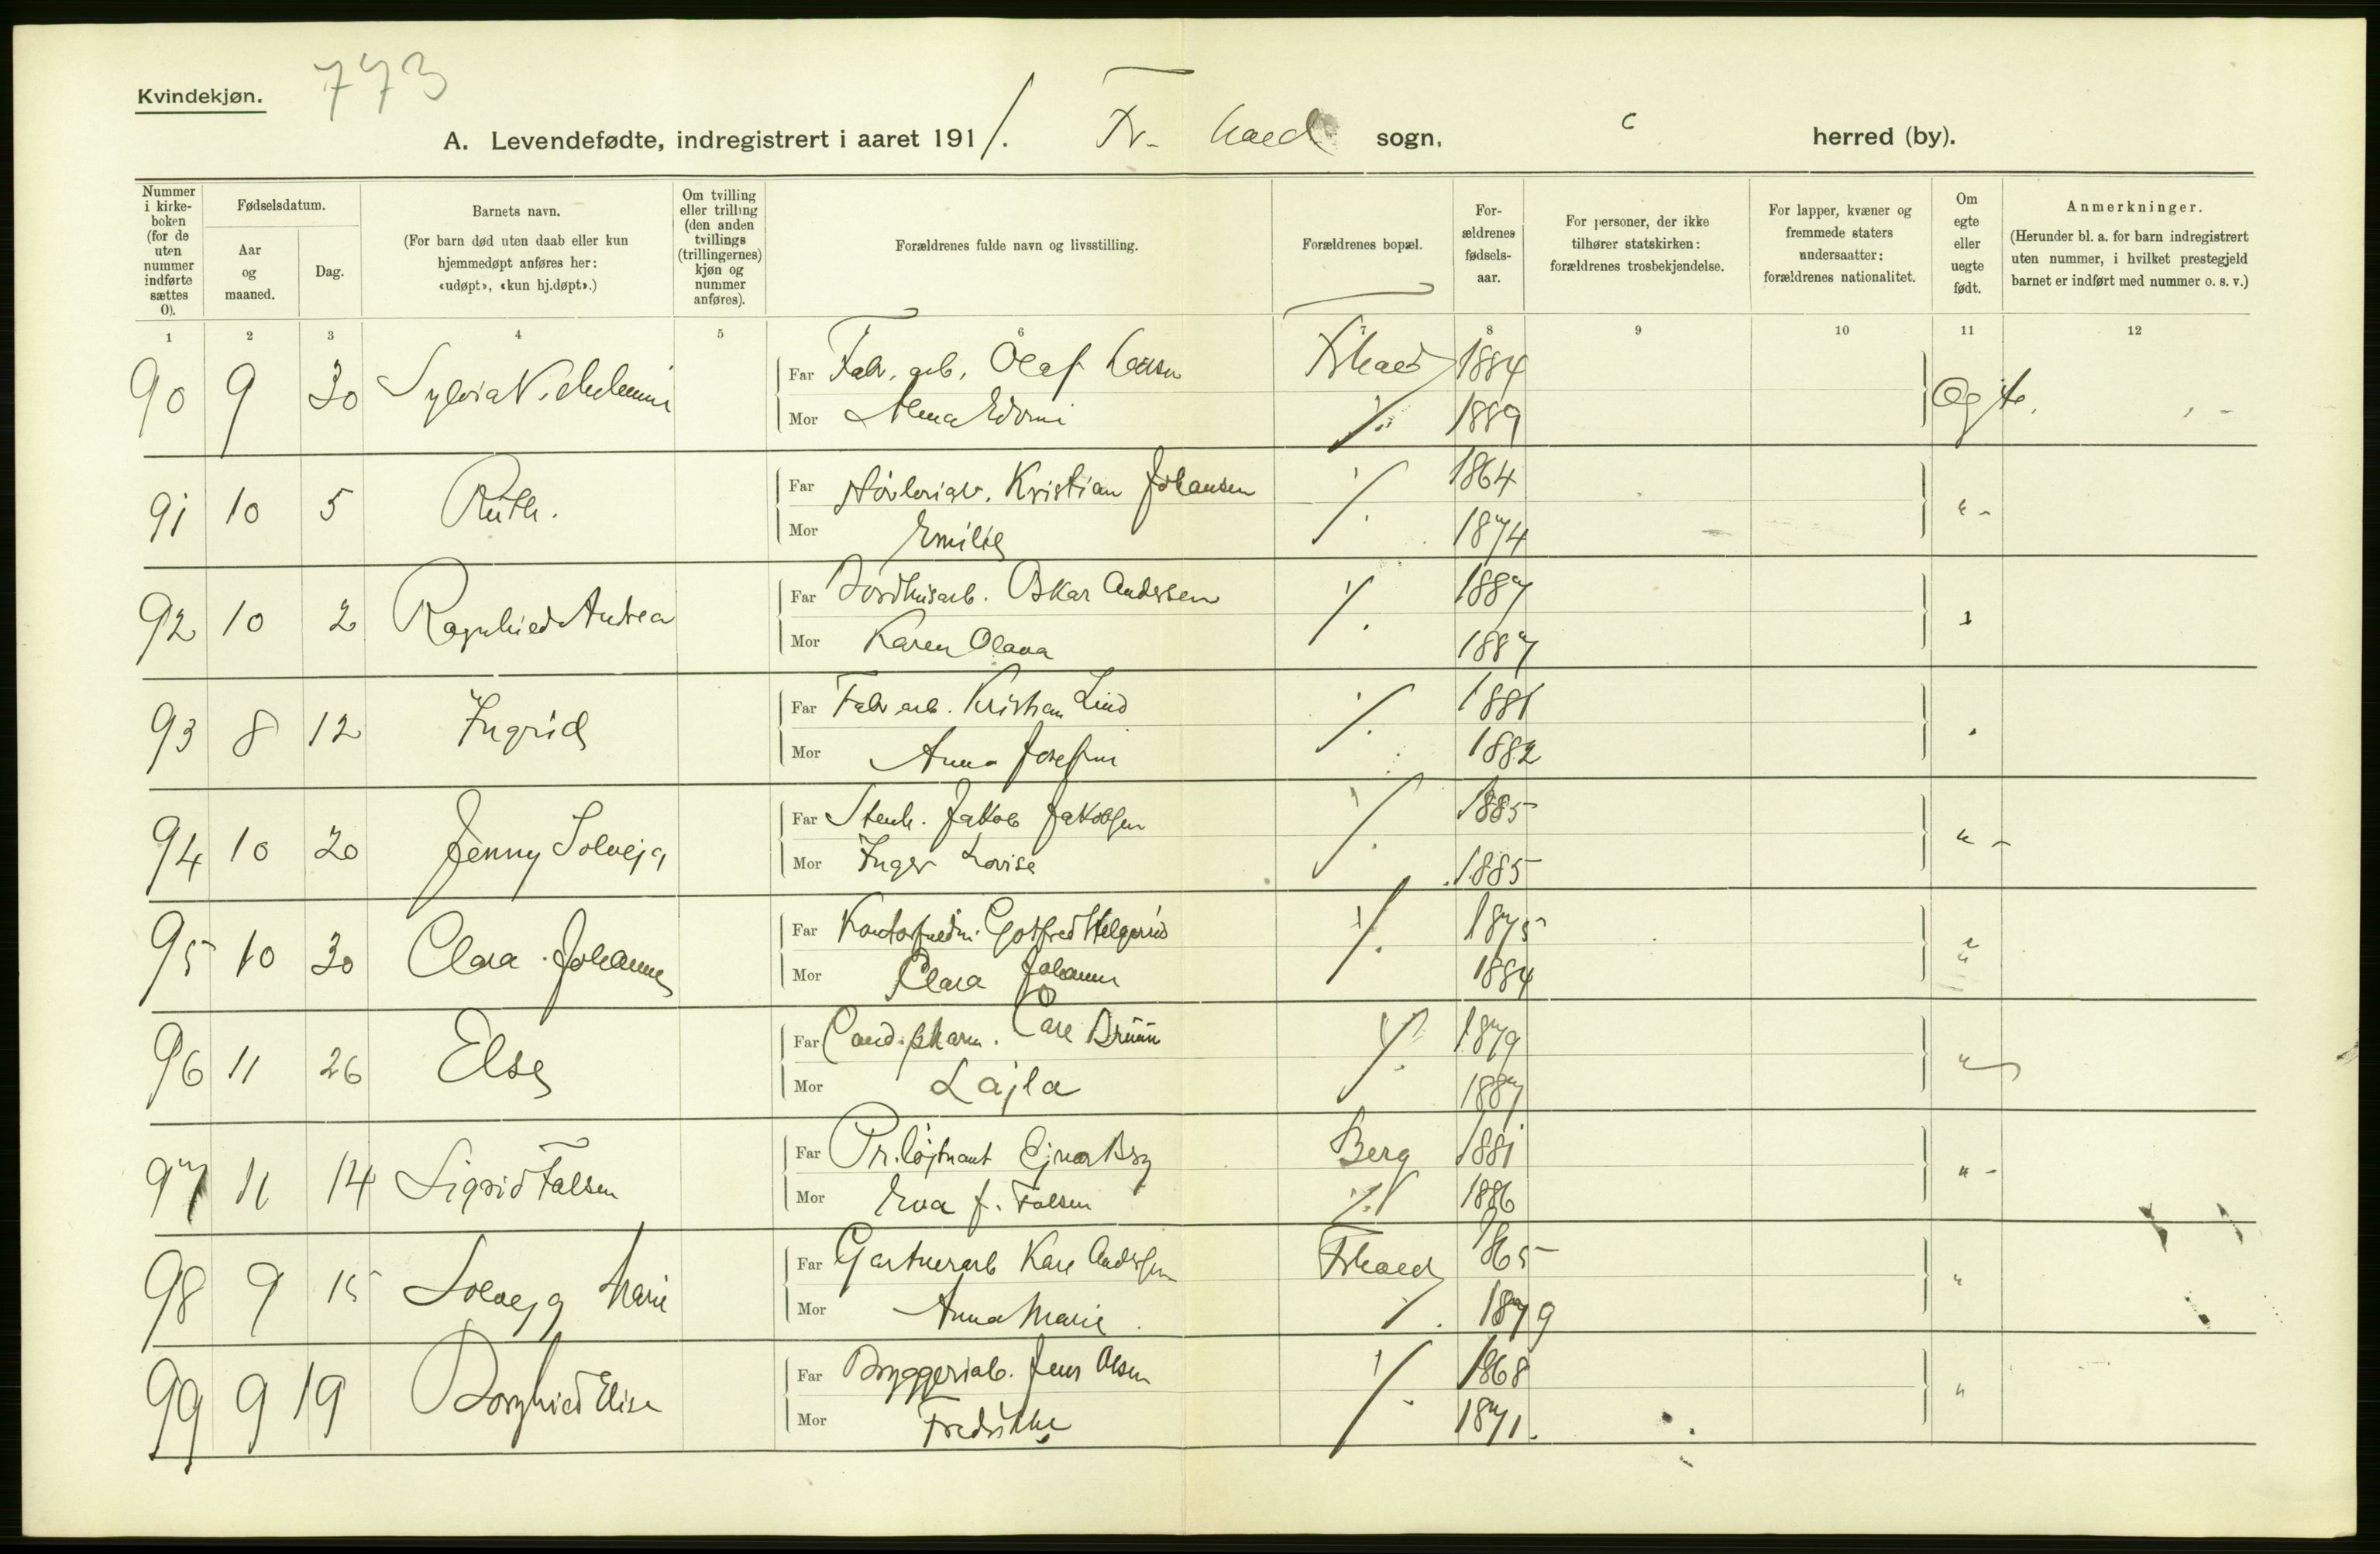 Kvindekjøn.
773
A. Levendefødte, indregistrert i aaret 1911. Fr. hald sogn, herred (by).
Nummer i kirke-boken (for de uten nummer indførte sættes 0).
Fødselsdatum.
Aar og maaned.
Dag.
Barnets navn.
(For barn død uten daab eller kun hjemmedøpt anføres her: «udøpt», «kun hj.døpt».)
Om tvilling eller trilling (den anden tvillings (trillingernes) kjøn og nummer anføres).
Forældrenes fulde navn og livsstilling.
Forældrenes bopæl.
For-ældrenes fødsels-aar.
For personer, der ikke tilhører statskirken: forældrenes trosbekjendelse.
For lapper, kvæner og fremmede staters undersaatter: forældrenes nationalitet.
Om egte eller uegte født.
Anmerkninger.
(Herunder bl. a. for barn indregistrert uten nummer, i hvilket prestegjeld barnet er indført med nummer o. s. v.)
1 2 3 4 5 6 7 8 9 10 11 12
90 9 30 Sylvia Vilhelmine Far Fabr. arb. Olaf Larsen Frhald 1884 Ægte
Mor Alma Edvine ./. 1889
91 10 5 Ruth. Far Høvleriarb. Kristian Johansen ./. 1864 " -
Mor Emilie 1874
92 10 2 Ragnhild Andrea Far Oskar Andersen ./. 1887
Mor Karen Olava 1887
93 8 12 Ingrid Far Fabr arb. Kristian Lind ./. 1881
Mor Anna Josefine 1882
94 10 20 Jenny Solveig Far Stenh. Jakob Jakobsen ./. 1885 " -
Mor Inger Lovise 1885
95 10 30 Clara Johanne Far Gotfred Helgerud ./. 1875 "
Mor Clara Johanne 1884
96 11 26 Else Far Cand. pharm. Carl Brünn ./. 1879 "
Mor Lajla 1887
97 11 14 Sigrid Falsen Far Pr.løjtnant Ejnar Bry Berg 1881 " -
Mor Eva f. Falsen ./. 1886
98 9 15 Solvejg Marie Far Gartnerarb Karl Andersen Frhald 1865 "
Mor Anna Marie ./. 1879
99 9 19 Borghild Elise Far Bryggeriarb. Jens Olsen ./. 1868 "
Mor Fredrikke 1871.